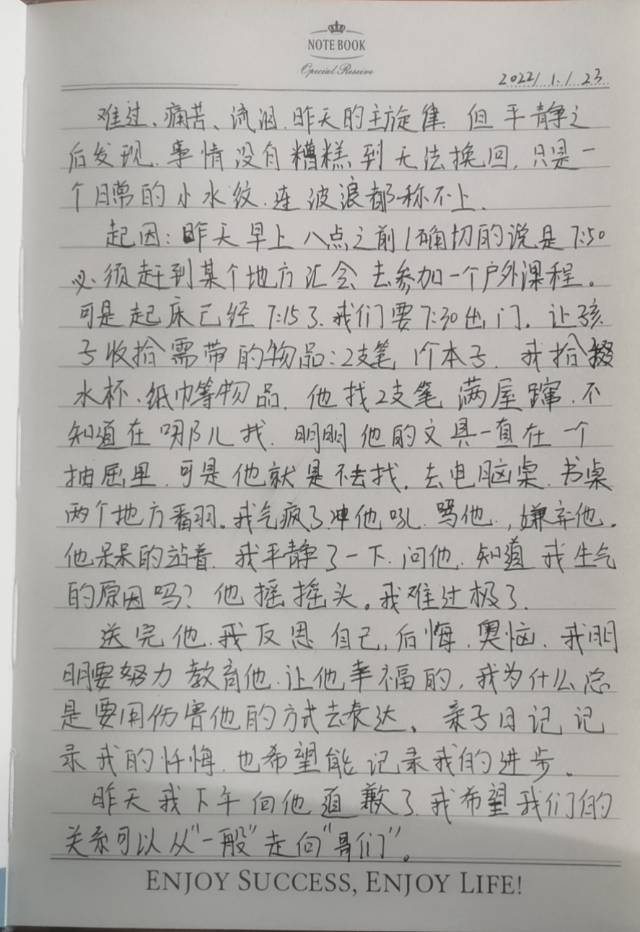 NOTE BOOK
Special Reseive
2022/1.1.23
难过、痛苦、流泪.昨天的主旋律.但平静之
后发现.事情没有糟糕到无法挽回.只是一
个日常的小水纹.连波浪都称不上.
起因:昨天早上八点之前/确切的说是7:50
必须赶到某个地方汇合去参加一个户外课程。
可是起床已经7:15了.我们要7:30出门.让孩
子收拾需带的物品:2支笔 1个本子.我拾掇
水杯、纸巾等物品.他找2支笔 满屋蹿.不
知道在哪儿找.明明他的文具一直在一个
抽屉里.可是他就是不去找.去电脑桌.书桌
两个地方翻.我气疯了冲他吼.骂他.,嫌弃他.
他呆呆的站着.我平静了一下.问他.知道我生气
的原因吗?他摇摇头。我难过极了.
送完他.我反思自己,后悔.奥恼.我明
明要努力教育他.让他幸福的,我为什么总
是要用伤害他的方式去表达、亲子日记 记
录我的忏悔.也希望能记录我的进步。
昨天我下午向他道歉了.我希望我们的
关系可以从"一般"走向"哥们"。
ENJOY SUCCESS, ENJOY LIFE!